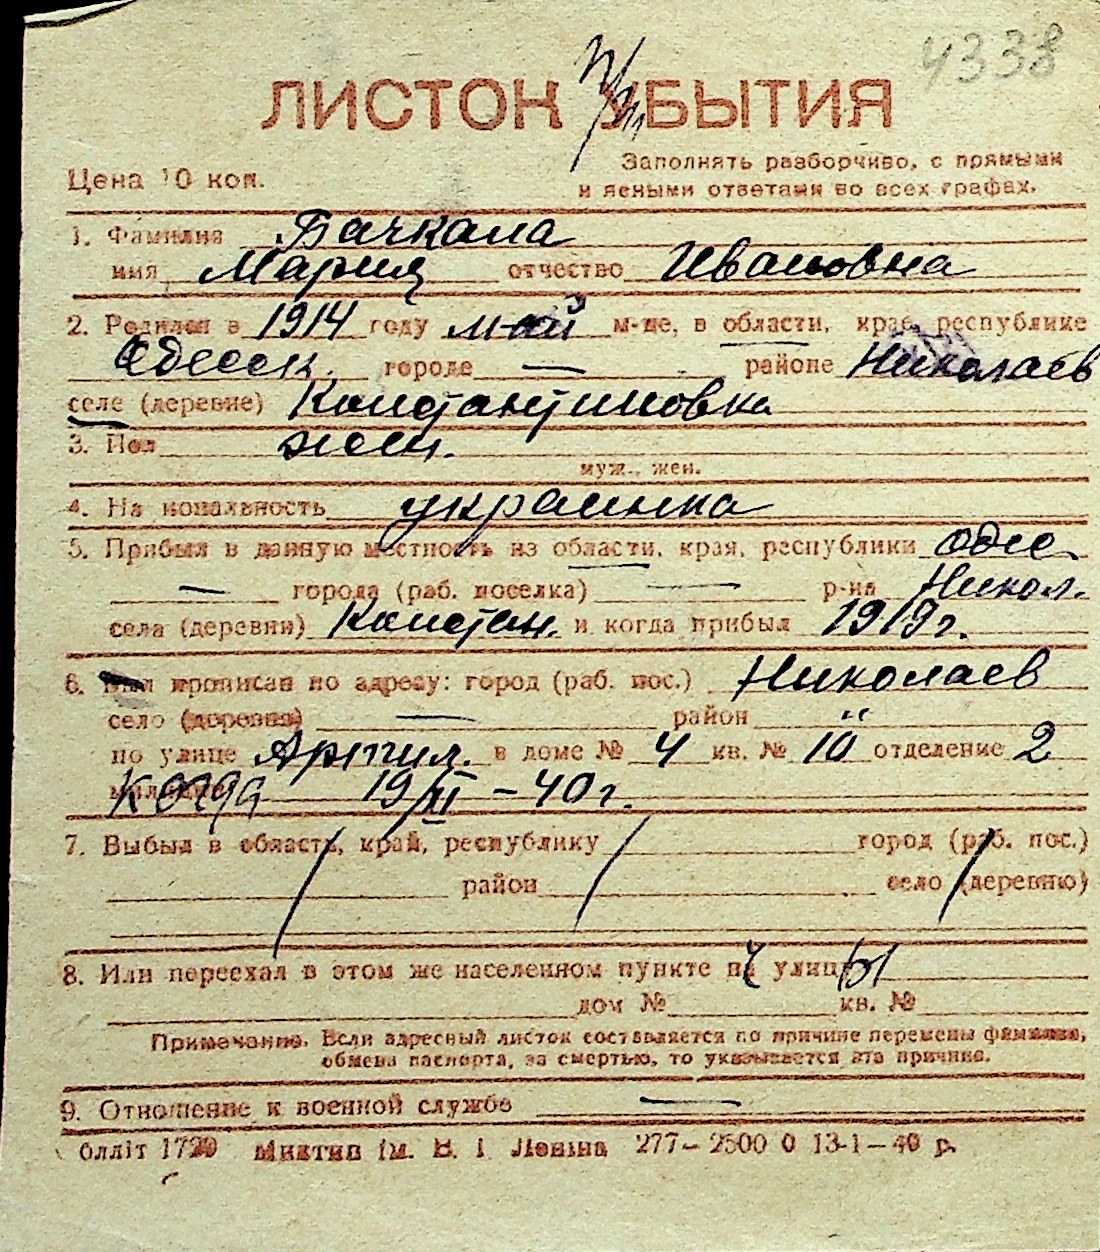 4338
ЛИСТОК УБЫТИЯ
Цена 10 коп.
Заполнять разборчиво, с прямыми
и ясными ответами во всех графах.
1. Фамилия Бачкала
имя Мария отчество Ивановна
2. Родился в 1914 году май м-це, в области, края, республике
Одесск. городе — районе Николаев
селе (деревне) Константиновка
3. Пол жен.
муж., жен.
4. Национальность украинка
5. Прибыл в данную местность из области, края, республики Одес.
— города (раб. поселка) — р-на Никол.
села (деревни) Констан. и когда прибыл 1919 г.
6. Был прописан по адресу: город (раб. пос.) Николаев
село (деревня) — район "
по улице Артил. в доме № 4 кв. № 10 отделение 2
милиции когда 19/XI - 40 г.
7. Выбыл в область, край, республику город (раб. пос.)
район село (деревню)
8. Или переехал в этом же населенном пункте улицы
дом № кв. №
Примечание. Если адресный листок составляется по причине перемены фамилии,
обмена паспорта, за смертью, то указывается эта причина.
9. Отношение к военной службе —
олліт 1720 Миктип ім. В. І Леніна 277—2500 0 13-1—40 р.